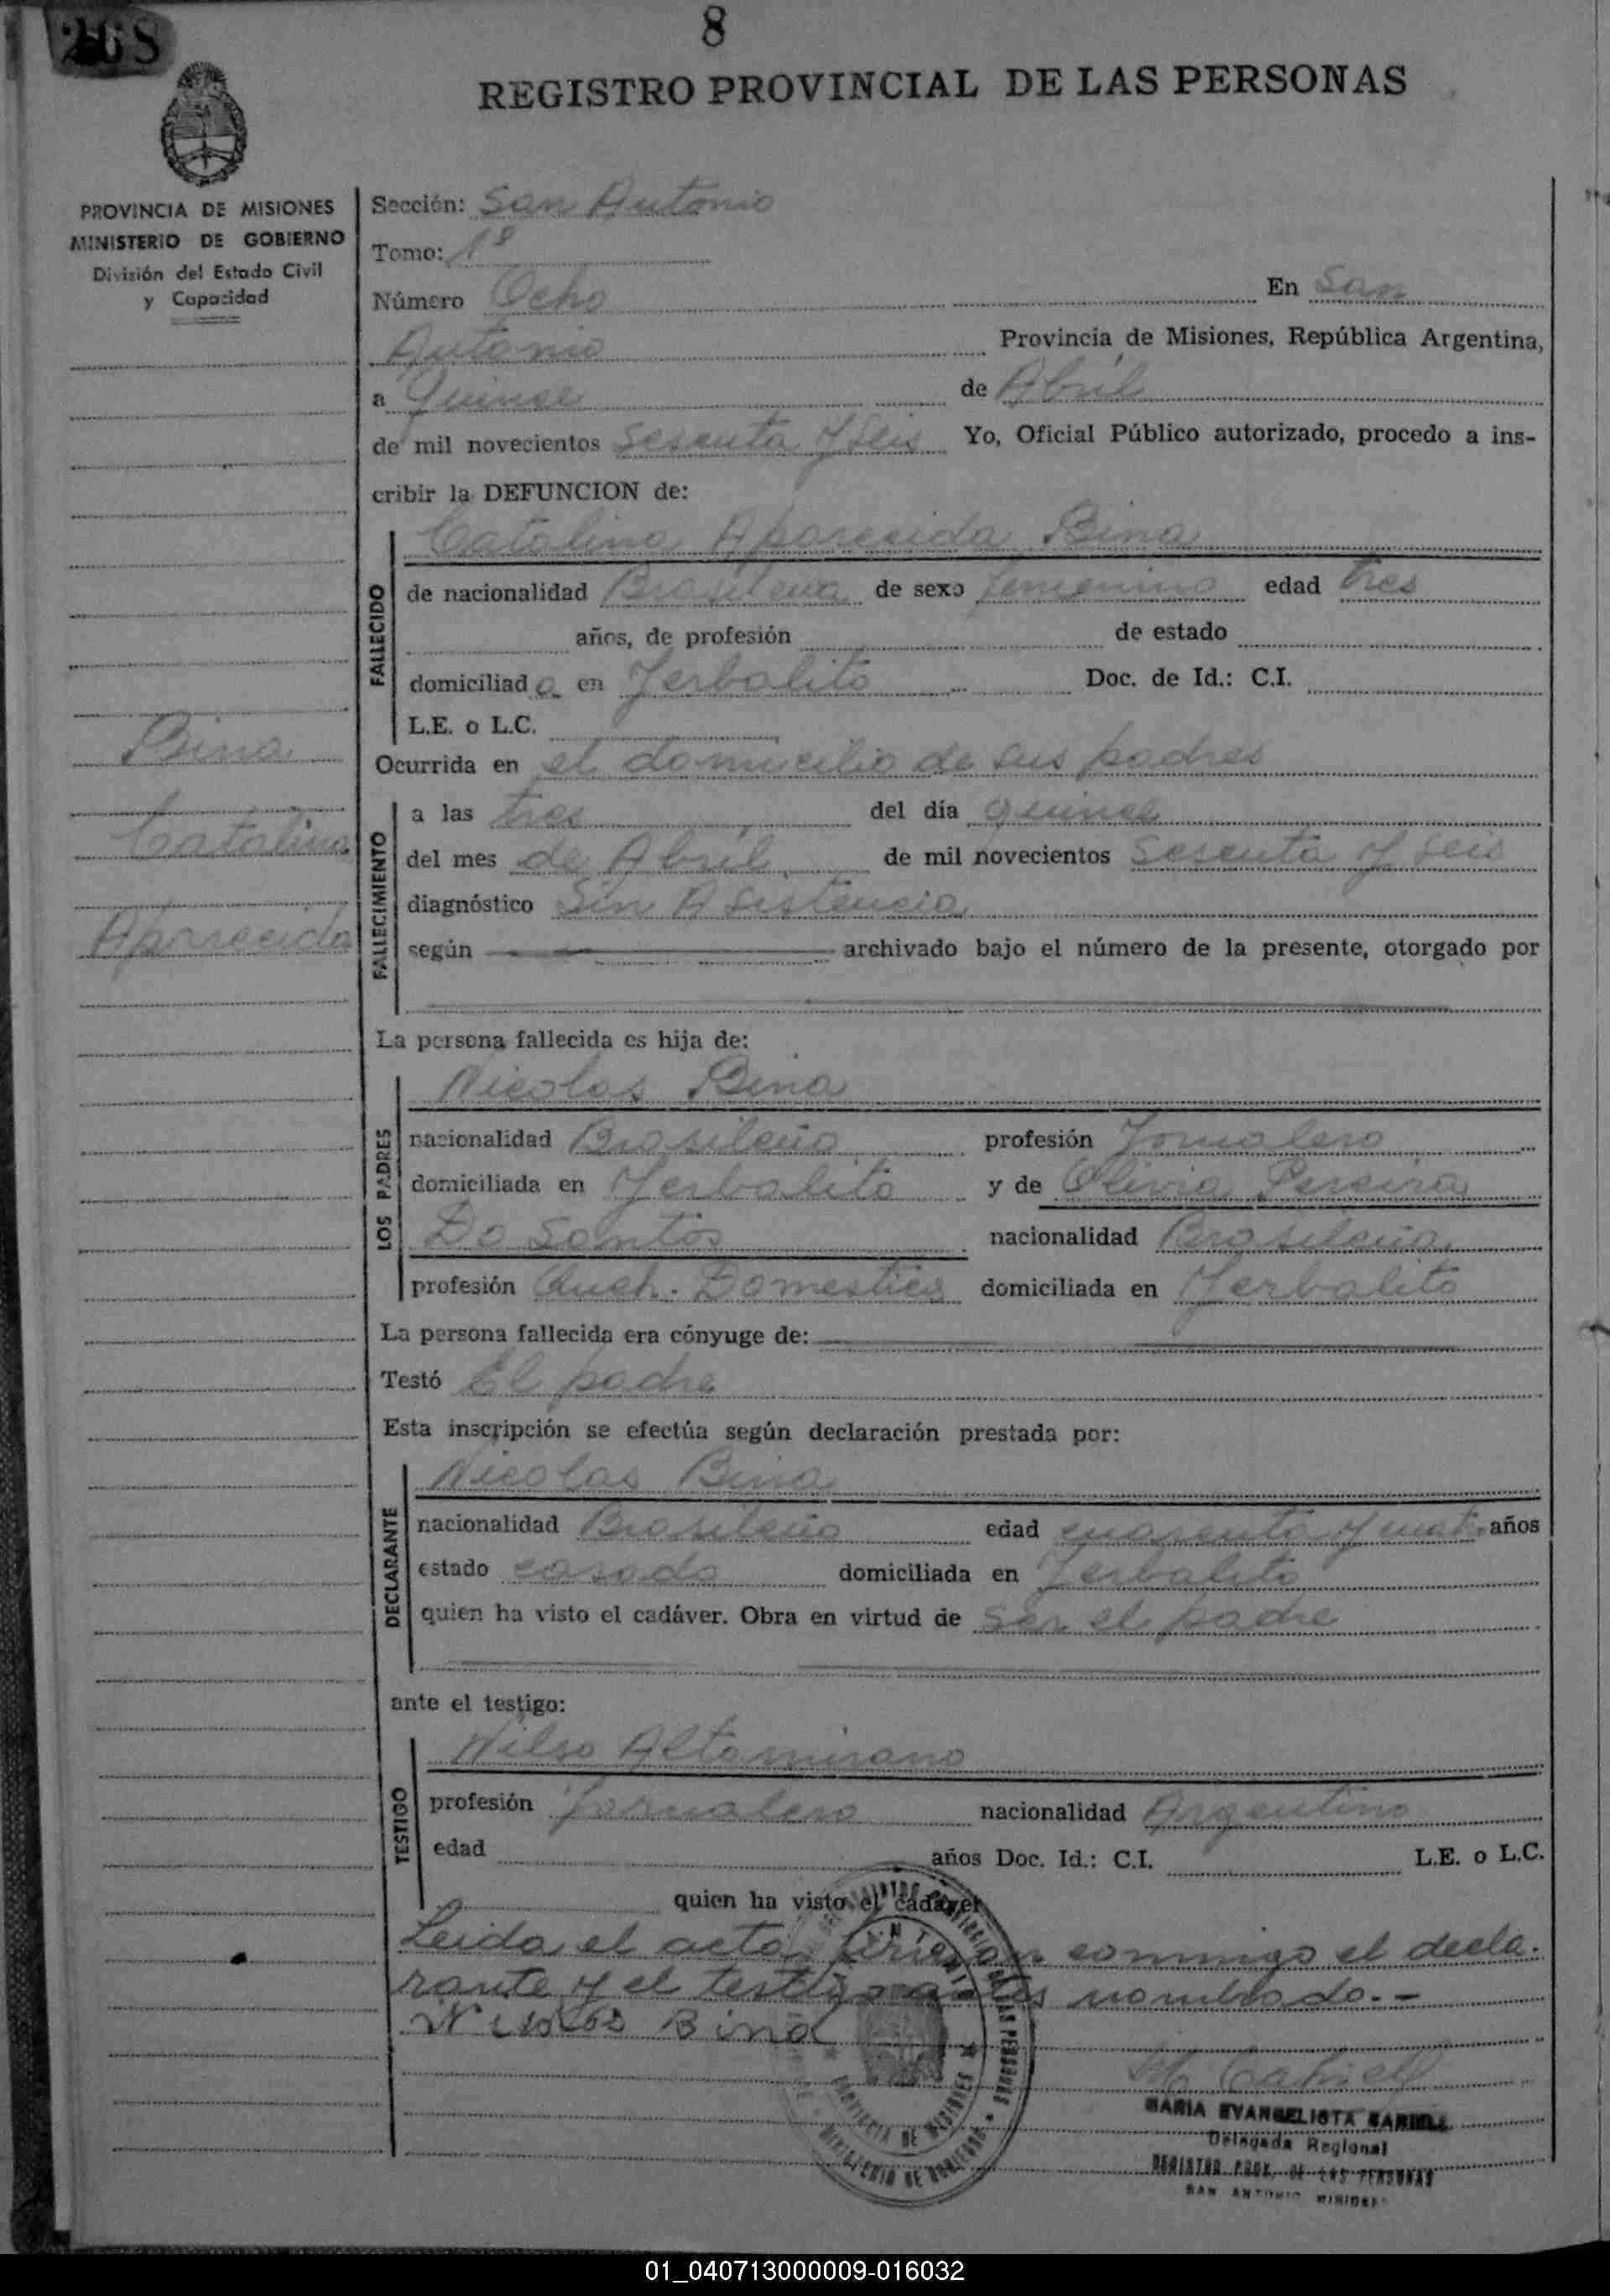 268
8
REGISTRO PROVINCIAL DE LAS PERSONAS
PROVINCIA DE MISIONES
MINISTERIO DE GOBIERNO
División del Estado Civil
y Capacidad
Sección: San Antonio
Tomo: 1º
Número Ocho En San
Antonio Provincia de Misiones, República Argentina,
a Quince de Abril
de mil novecientos sesenta y seis Yo, Oficial Público autorizado, procedo a ins-
cribir la DEFUNCION de:
Catalina Aparecida Bina
FALLECIDO
de nacionalidad Brasileña de sexo femenino edad tres
años, de profesión de estado
domiciliada en Yerbalito Doc. de Id.: C.I.
L.E. o L.C.
Bina
Catalina
Aparecida
Ocurrida en el domicilio de sus padres
FALLECIMIENTO
a las tres del día quince
del mes de Abril de mil novecientos sesenta y seis
diagnóstico Sin Asistencia
según archivado bajo el número de la presente, otorgado por
La persona fallecida es hija de:
Nicolas Bina
LOS PADRES
nacionalidad Brasileño profesión Jornalero
domiciliada en Yerbalito y de Olivia Pereira
Do Santos nacionalidad Brasileña
profesión Queh. Domesticos domiciliada en Yerbalito
La persona fallecida era cónyuge de:
Testó El padre
Esta inscripción se efectúa según declaración prestada por:
Nicolas Bina
DECLARANTE
nacionalidad Brasileño edad cuarenta y años
estado casado domiciliada en Yerbalito
quien ha visto el cadáver. Obra en virtud de ser el padre
ante el testigo:
Nilso Altamirano
TESTIGO
profesión jornalero nacionalidad Argentino
edad años Doc. Id.: C.I. L.E. o L.C.
quien ha visto el cadáver
Leida el acta, firman conmigo el decla-
rante y el testigo antes nombrado.-
Nicolas Bina
PROVINCIA DE MISIONES
MINISTERIO DE GOBIERNO
M Cabriell
MARIA EVANGELISTA
Delegada Regional
REGISTRO PROV. DE LAS PERSONAS
SAN ANTONIO MISIONES
01_040713000009-016032